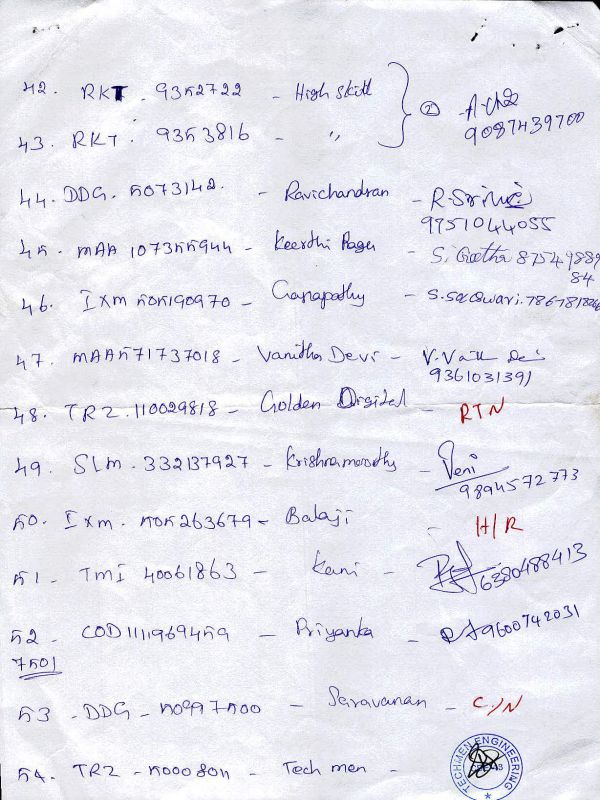 42. RKT. 9352722 - High Skill
② 9087439700
43. RKT. 9353816 - "
44. DDG. 5073142. - Ravichandran - R.
9751044055
45. MAA 107355944 - Keerthi - S. Geetha 87549889
84
46. IXM 505190970 - Ganapathy - S.
47. MAA571737018 - Vanitha Devi - V.
9361031391
48. TRZ. 110029818 - Golden Digital - RTN
49. SLM. 332137927 - Krishnamoorthy - Veni
9894572773
50. IXM. 505263679 - Balaji - H/R
51. TMI 40061863 - Kani - 6380488413
52. COD1111969459 - Priyanka - 9600742031
7501
53. DDG - 50997500 - Saravanan - C/N
54. TRZ - 5000801 - Tech men -
TECHMEN ENGINEERING